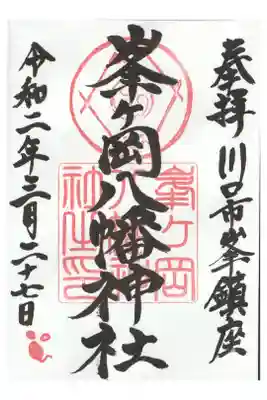 奉拝 川口市峯鎮座
峯ヶ岡八幡神社
令和二年三月二十七日
峯ケ岡八幡神社之印